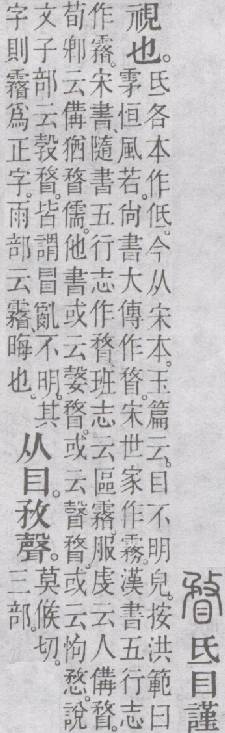 瞀氐目謹
視也。
氐各本作低。今从宋本。玉篇云。目不明皃。按洪範曰
雺恒風若。尙書大傳作瞀。宋世家作霧。漢書五行志
作霿。宋書、隨書五行志作瞀。班志云區霿。服虔云人傋瞀。
荀卿云傋猶瞀儒。他書或云婺瞀。或云聲瞀。或云怐愗。說
文子部云㝅瞀。皆謂冒亂不明。其
字則霿爲正字。雨部云霿、晦也。
从目。敄聲。
莫候切。
三部。